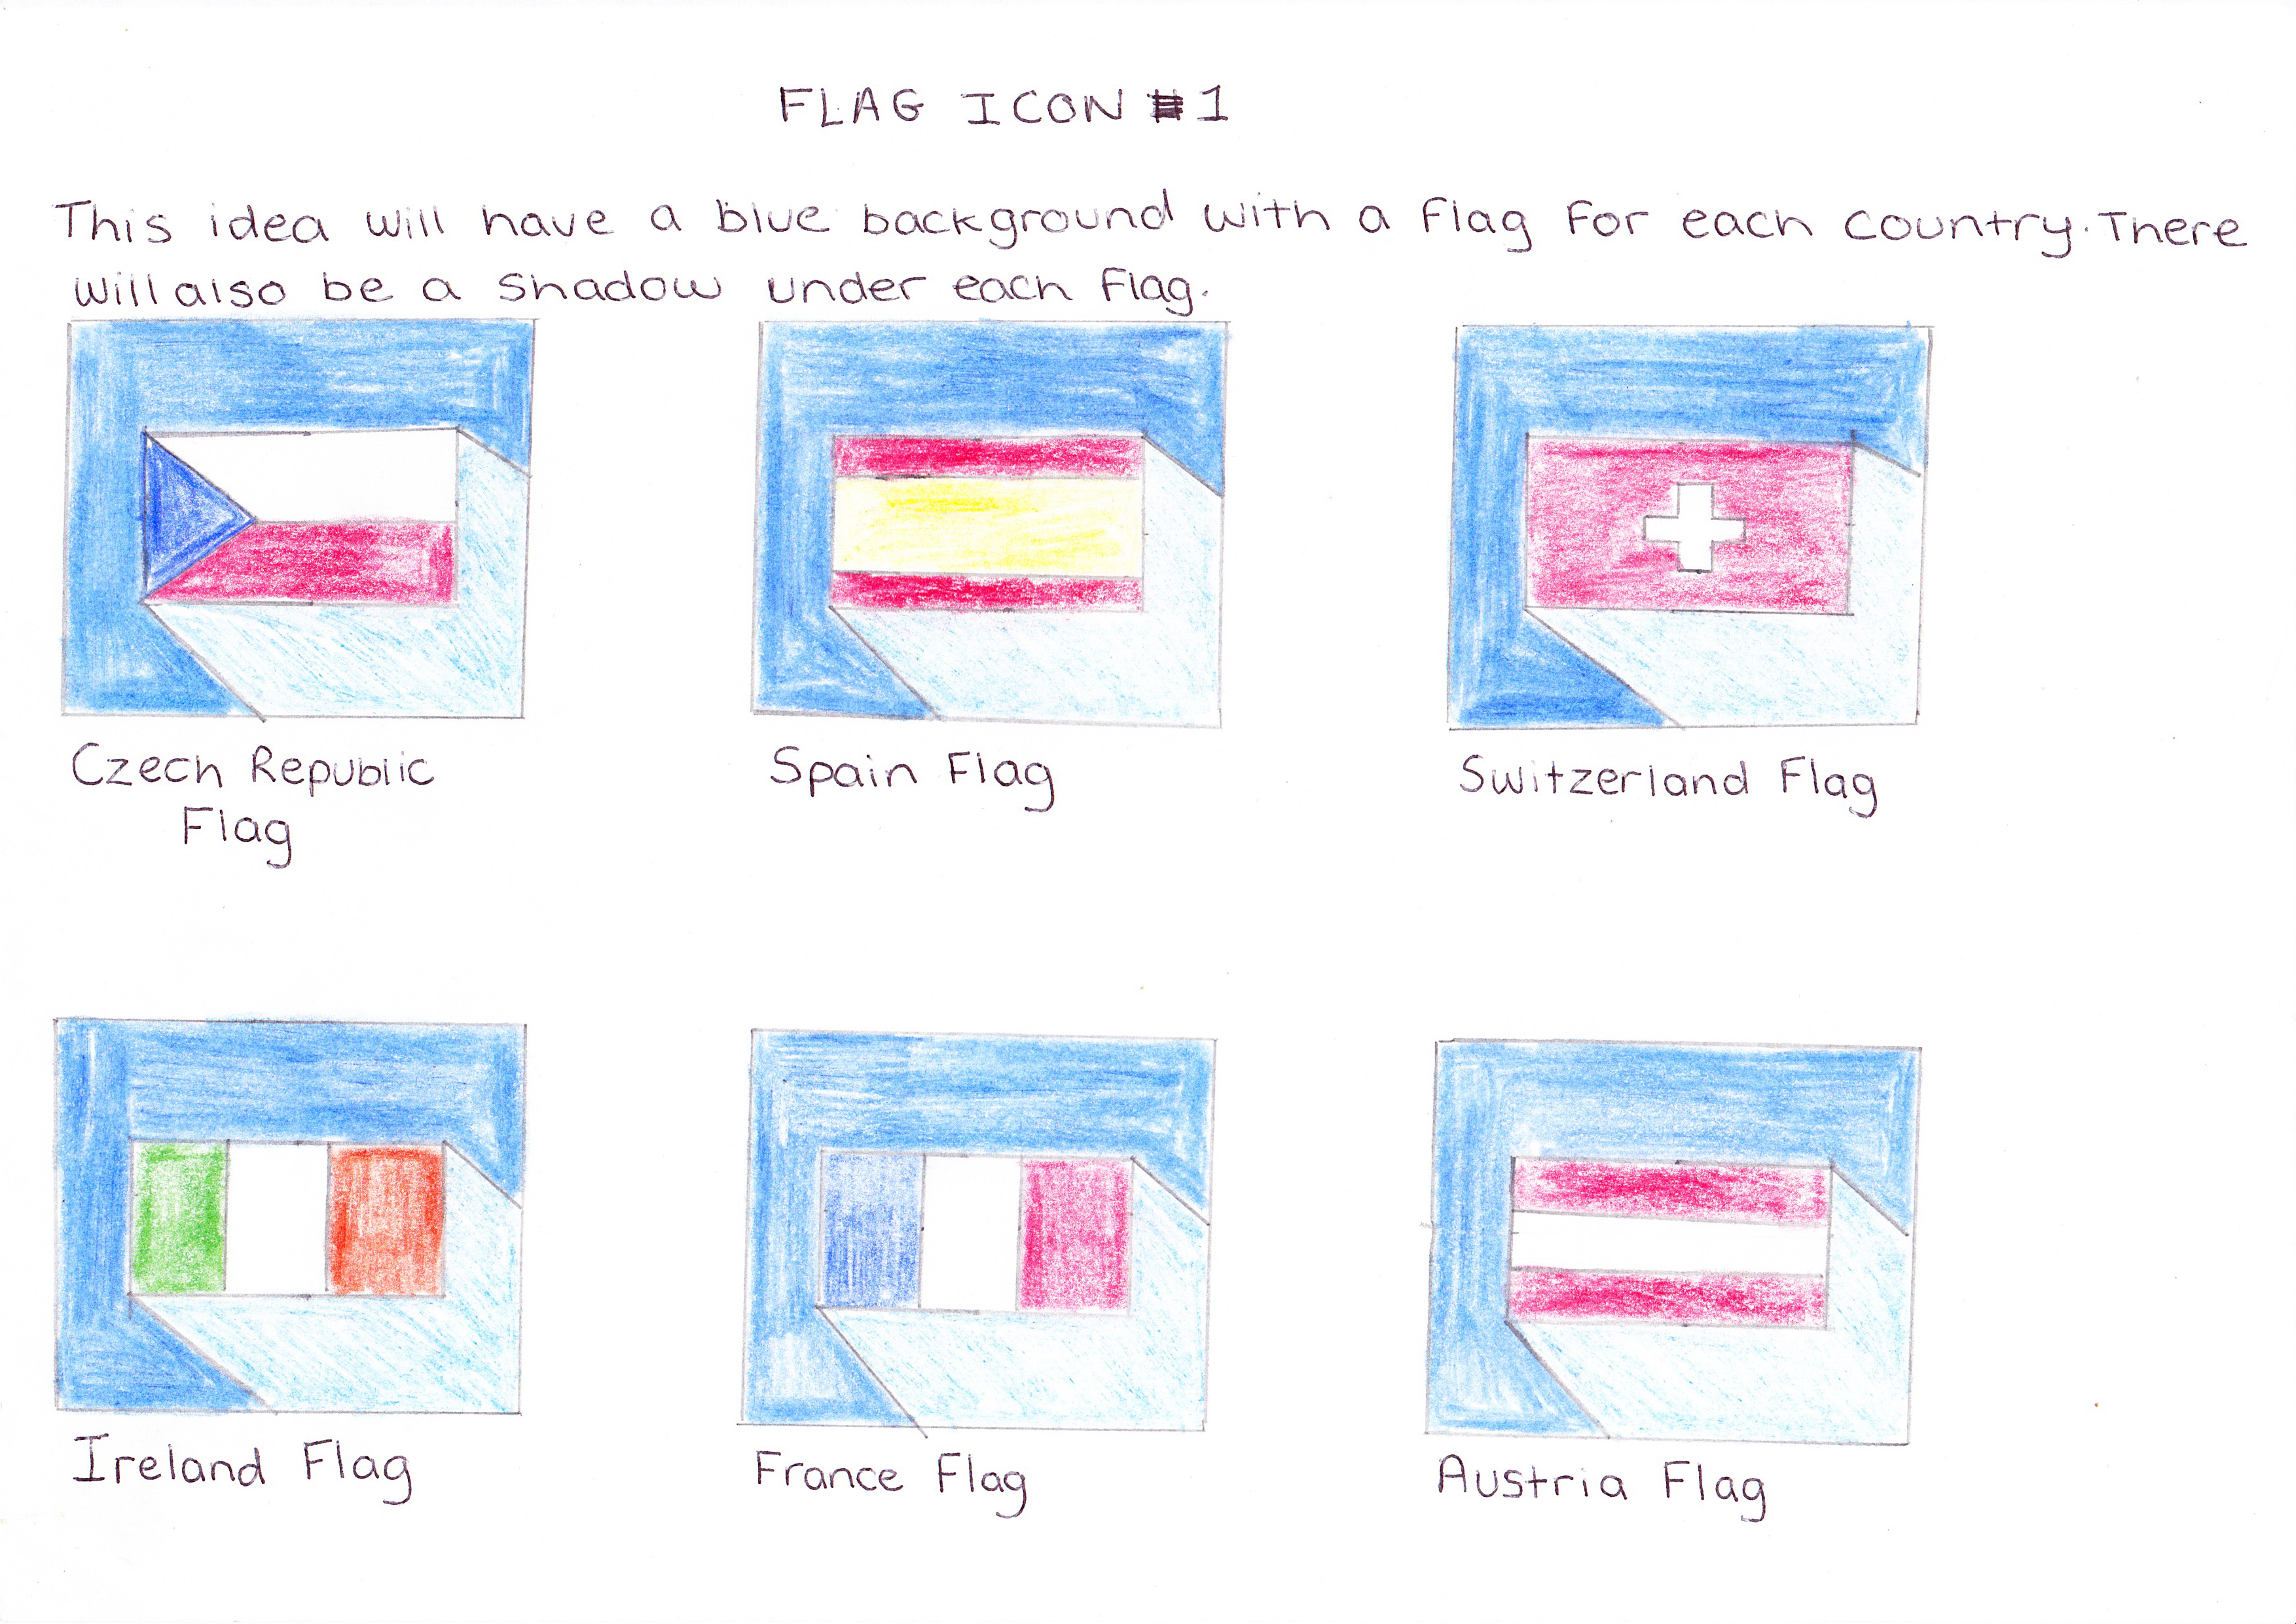 FLAG ICON #1
This idea will have a blue background with a flag for each country. There
will also be a shadow under each flag.
Czech Republic
Flag
Spain Flag
Switzerland Flag
Ireland Flag
France Flag
Austria Flag